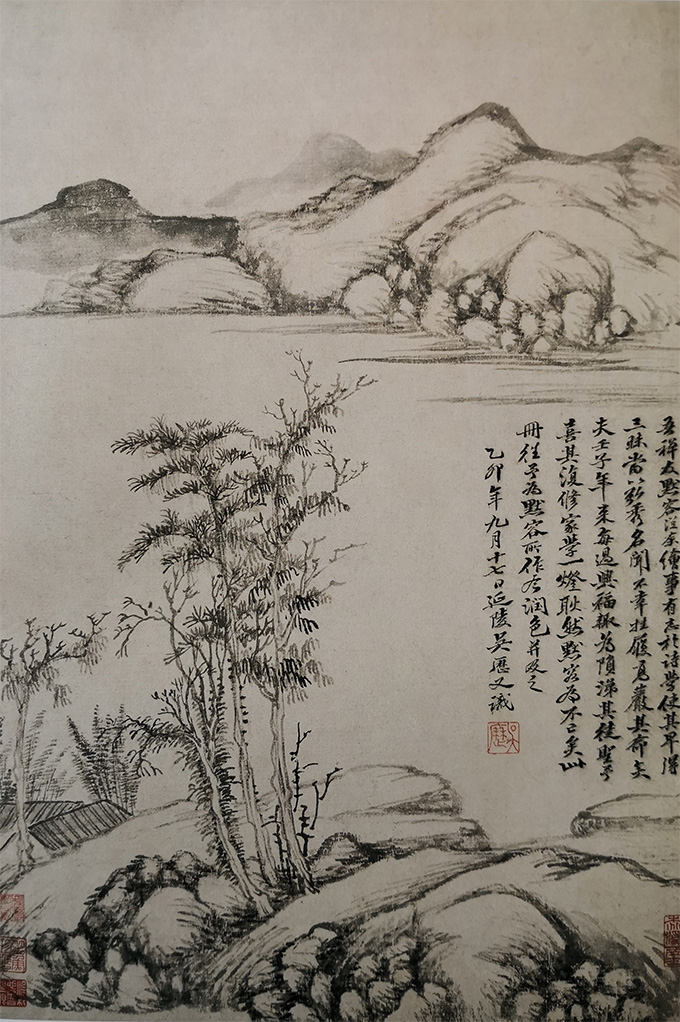 吾禪友默容從余繪事有志於詩學使其早得
三昧當以秀名聞不幸履巖其矣
夫壬子年來每過興福輒為隕涕其徒聖予
喜其復修家學一燈耿然默容為不亡矣此
冊往予為默容所作今潤色并及之
乙卯年九月十七日延陵吳歷又識